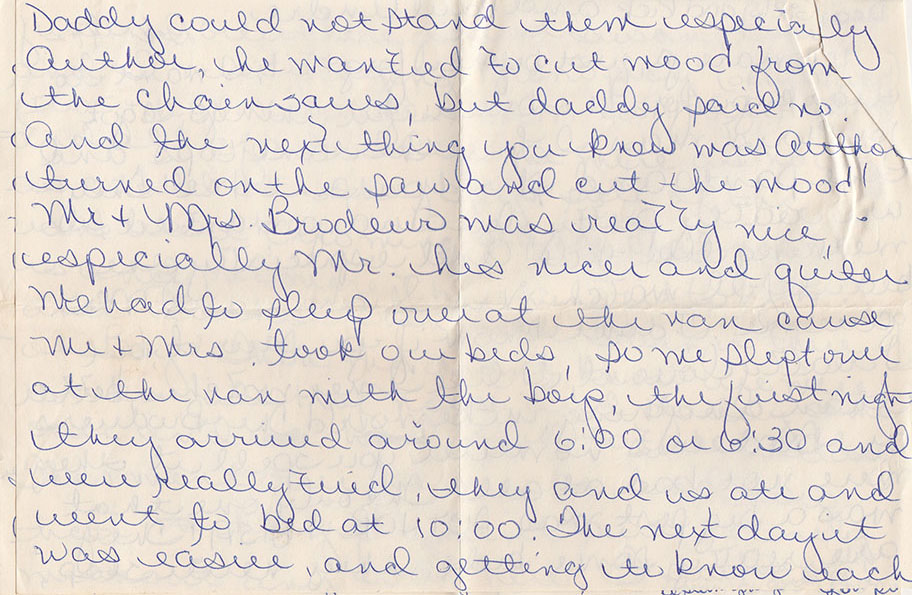 Daddy could not stand them especially
Author, he wantied to cut wood from
the chainsaws, but daddy said no.
And the next thing you know was Author
turned on the saw and cut the wood!
Mr + Mrs. Brodeur was really nice,
especially Mr. hes nicer and quiter
We had to sleep over at the van cause
Mr + Mrs. took our beds, so we slept over
at the van with the boys, the first night
they arrived around 6:00 or 6:30 and
were really tired, they and us ate and
went to bed at 10:00. The next day it
was easier, and getting to know each